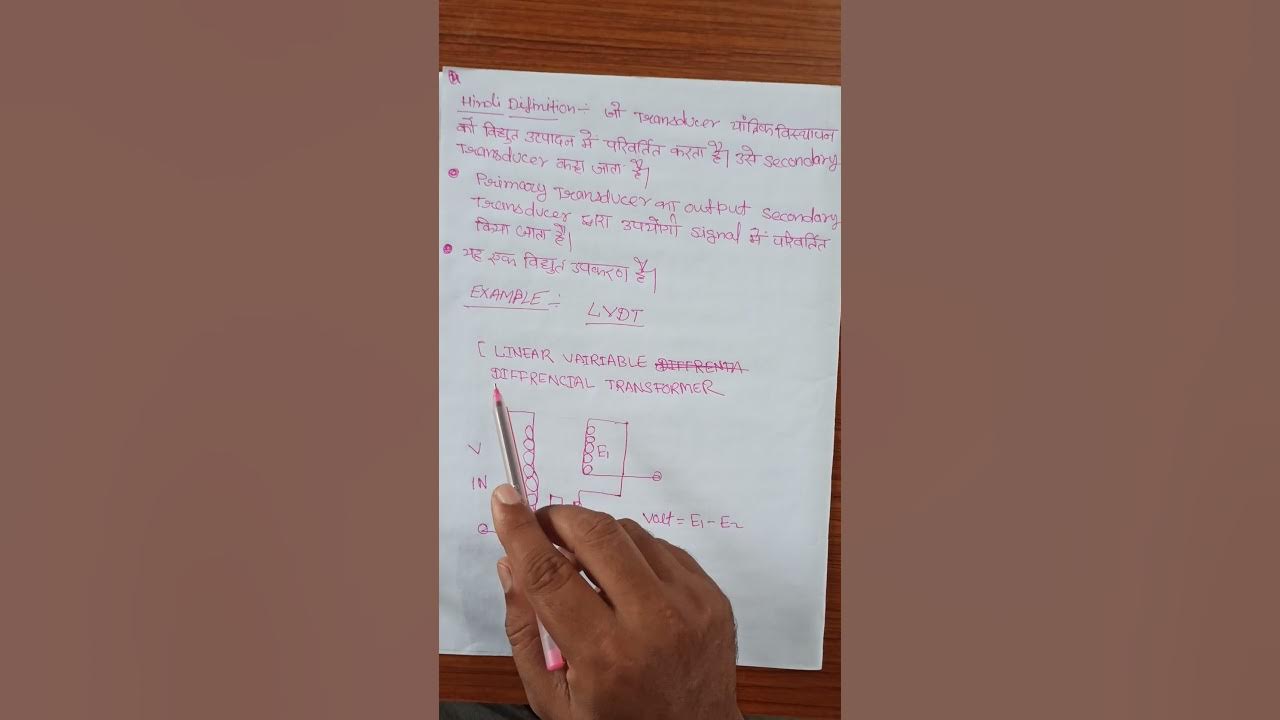 Hindi Difinition:- जो Transducer यांत्रिक विस्थापन
को विद्युत उत्पादन में परिवर्तित करता है। उसे secondary
Transducer कहा जाता है।
Primary Transducer का output secondary
Transducer द्वारा उपयोगी signal में परिवर्तित
किया जाता है।
यह एक विद्युत उपकरण है।
EXAMPLE:-
LVDT
[ LINEAR VAIRIABLE DIFFRENTA
DIFFRENCIAL TRANSFORMER
V
E1
IN
Volt = E1 - E2